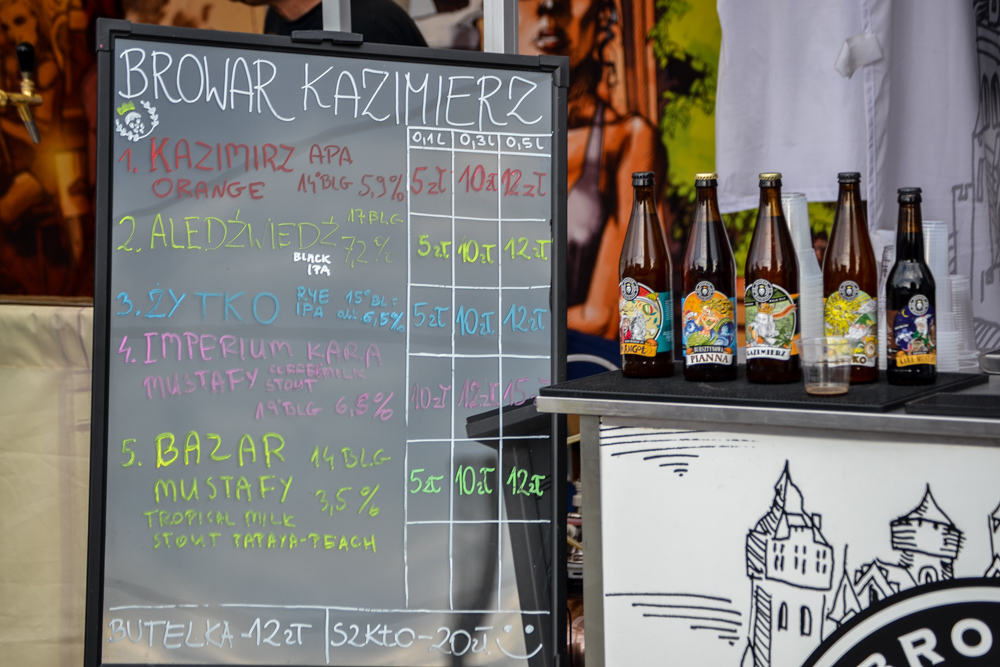 BROWAR KAZIMIERZ
0,1L 0,3L 0,5L
1. KAZIMIRZ APA
ORANGE 14°BLG 5,9% 5zł 10zł 12zł
17BLG
2. ALEDŹWIEDŹ 7,2% 5zł 10zł 12zł
BLACK
IPA
3. ŻYTKO RYE 15°BLG
IPA alk 6,5% 5zł 10zł 12zł
4. IMPERIUM KARA
MUSTAFY COFFEEMILK
STOUT 10zł 12zł 15zł
19°BLG 6,8%
5. BAZAR 14BLG
MUSTAFY 3,5% 5zł 10zł 12zł
TROPICAL MILK
STOUT PAPAYA-PEACH
BUTELKA - 12zł SZKŁO - 20zł
PIANNA
KAZIMIERZ
BRO